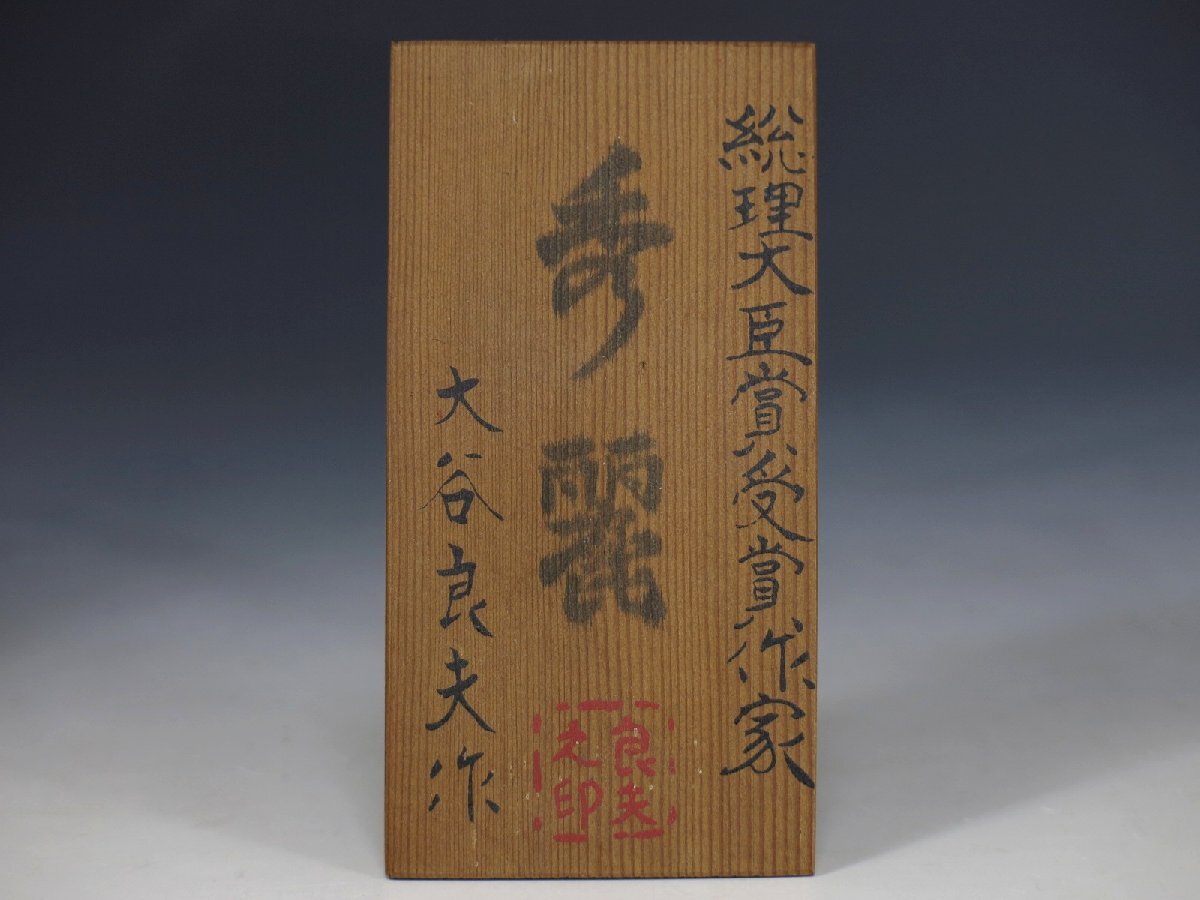 総理大臣賞受賞作家
秀麗
大谷良夫作
良夫
之印